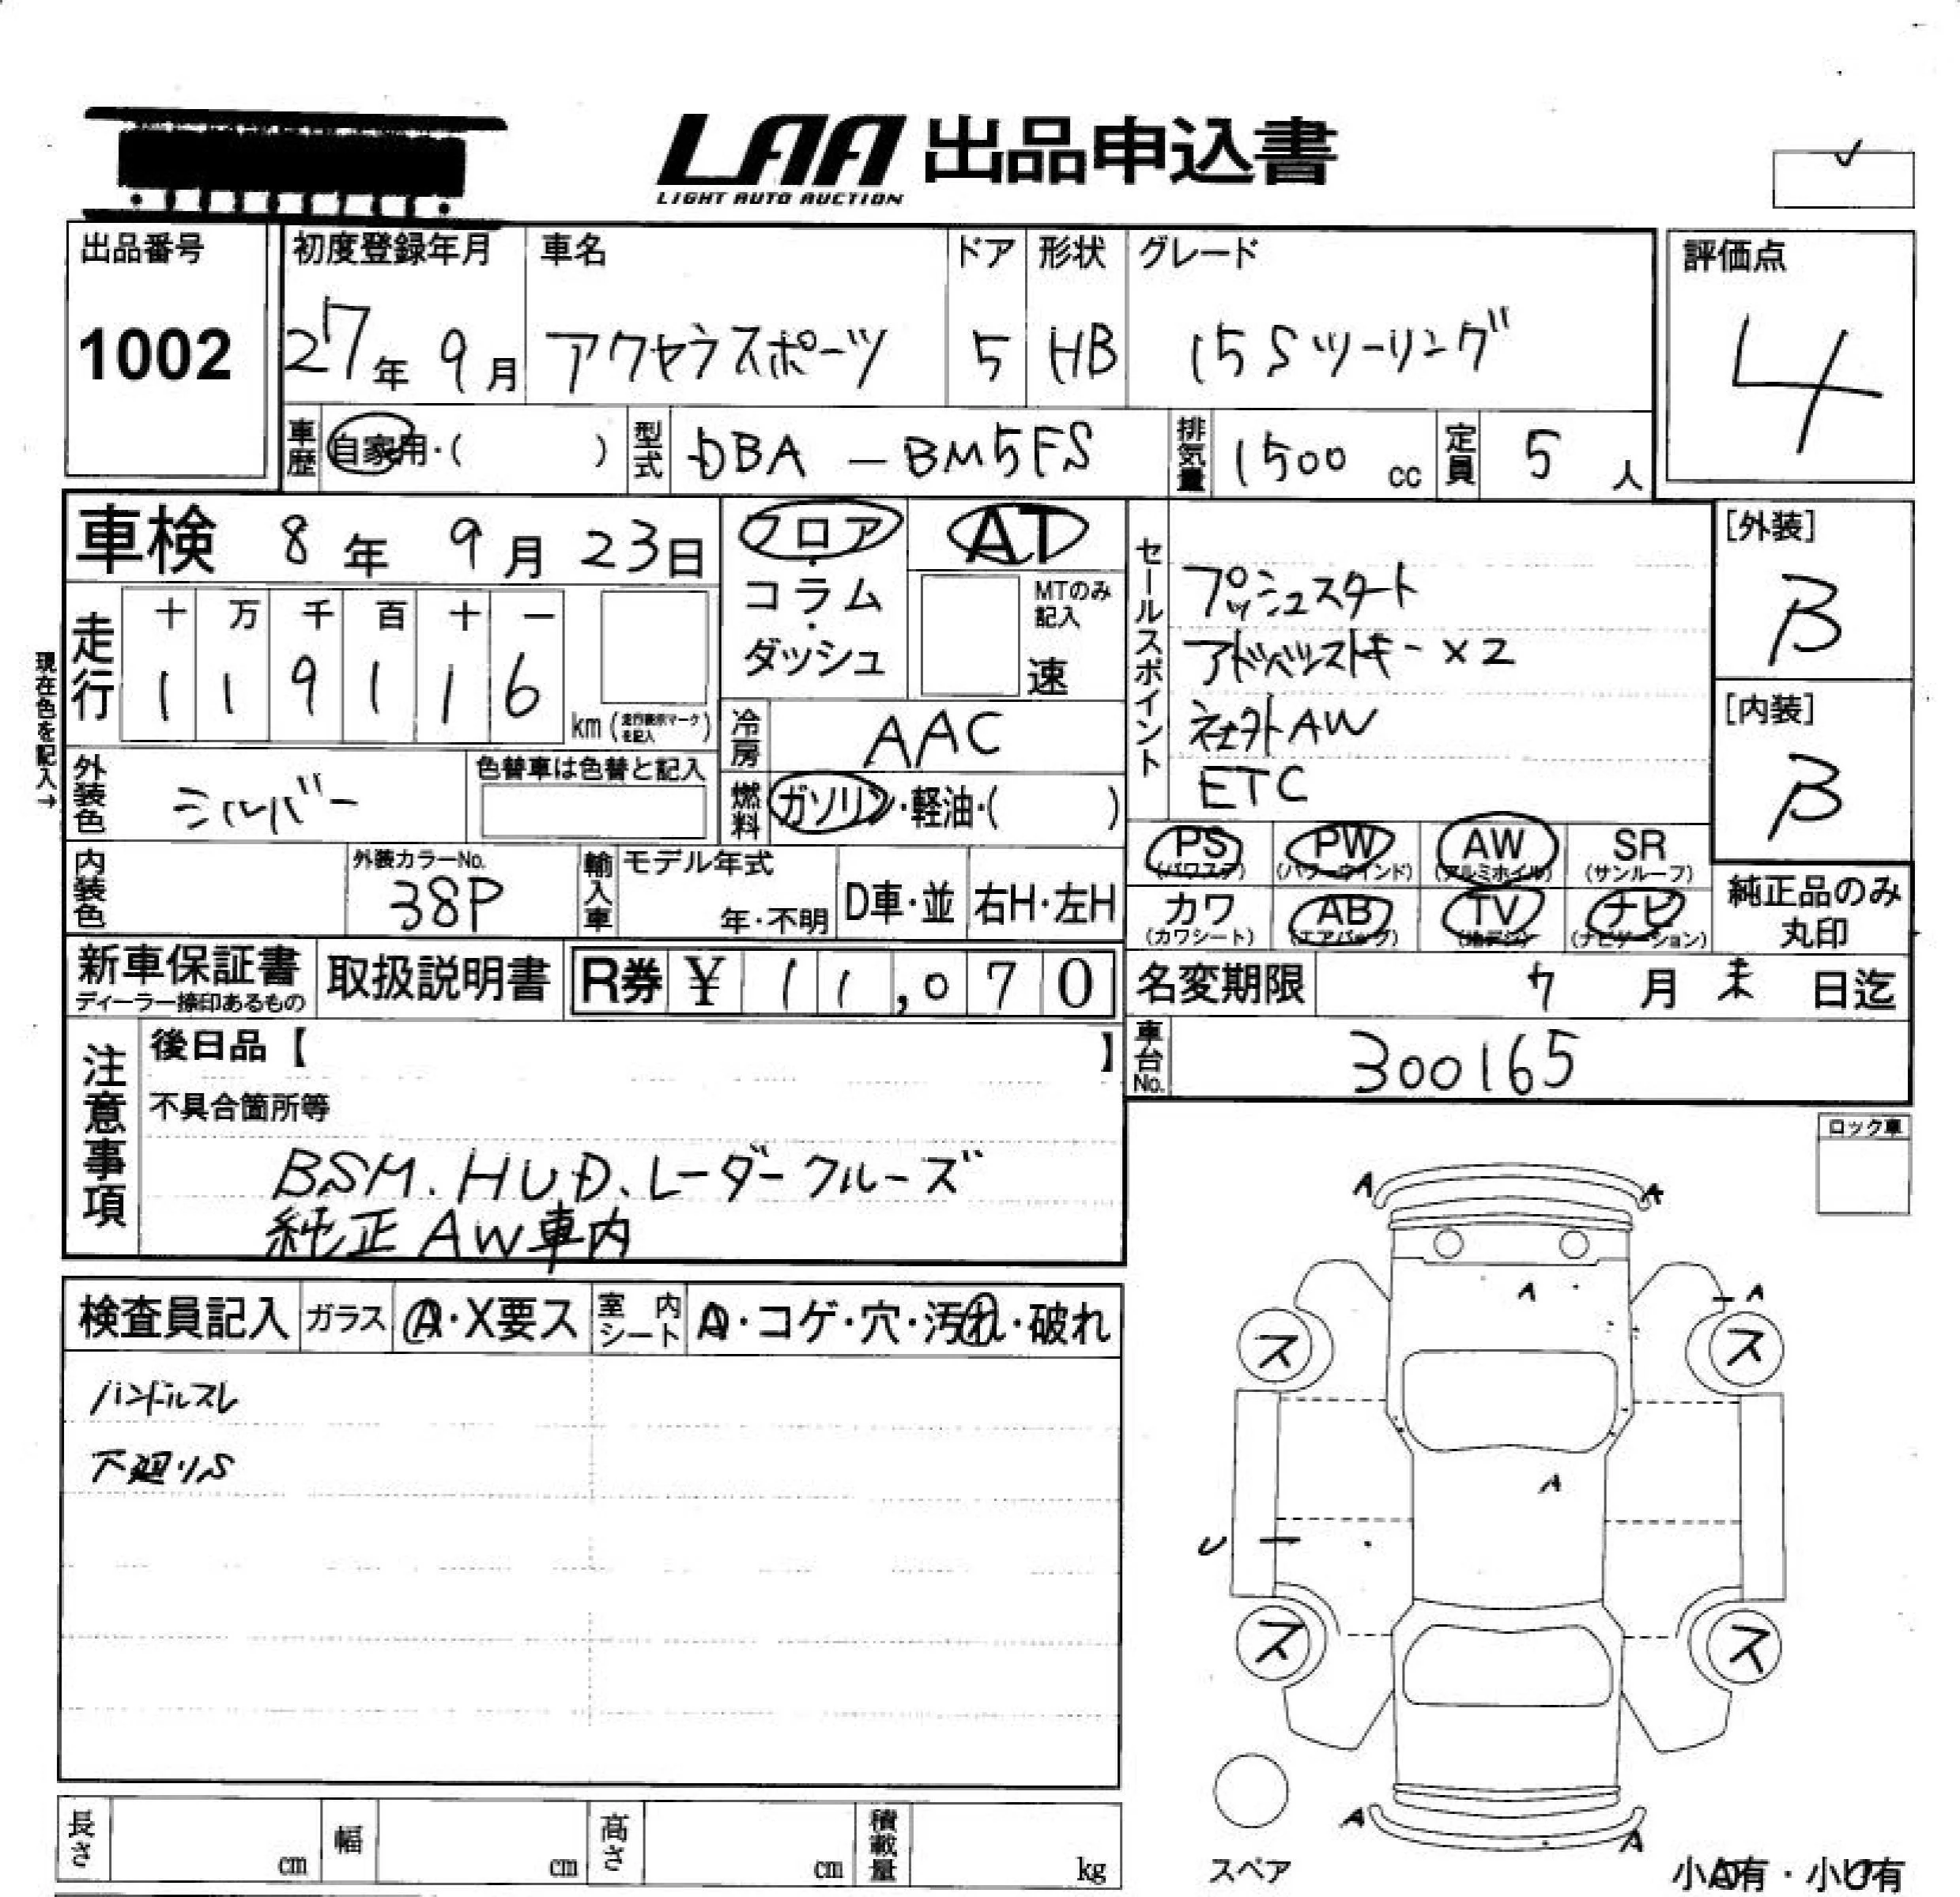 LAA 出品申込書
LIGHT AUTO AUCTION
出品番号 初度登録年月 車名 ドア 形状 グレード 評価点
1002 27年 9月 アクセラスポーツ 5 HB 15Sツーリング 4
車歴 自家用・( ) 型式 DBA-BM5FS 排気量 1500 cc 定員 5 人
車検 8年 9月 23日 フロア・コラム・ダッシュ AT
MTのみ記入 速
現在色を記入→
走行 十 万 千 百 十 一
1 1 9 1 1 6 km (走行表示マークを記入)
冷房 AAC
外装色 シルバー 色替車は色替と記入
燃料 ガソリン・軽油・( )
内装色 外装カラーNo. 38P 輸入車 モデル年式 年・不明 D車・並 右H・左H
セールスポイント
プッシュスタート
アドバンストキー×2
社外AW
ETC
[外装] B
[内装] B
PS (パワステ) PW (パワーウインド) AW (アルミホイル) SR (サンルーフ)
カワ (カワシート) AB (エアバッグ) TV (地デジ) ナビ (ナビゲーション)
純正品のみ丸印
新車保証書 ディーラー捺印あるもの 取扱説明書 R券 ¥ 11,070
名変期限 7月 末日迄
車台No. 300165
注意事項
後日品【 】
不具合箇所等
BSM.HUD、レーダークルーズ
純正AW車内
ロック車
検査員記入 ガラス A・X要ス 室内シート A・コゲ・穴・汚れ・破れ
ハンドルスレ
下廻りS
A A
A
A
ス ス
A
U
ス ス
A A
スペア
小A有・小U有
長さ cm 幅 cm 高さ cm 積載量 kg